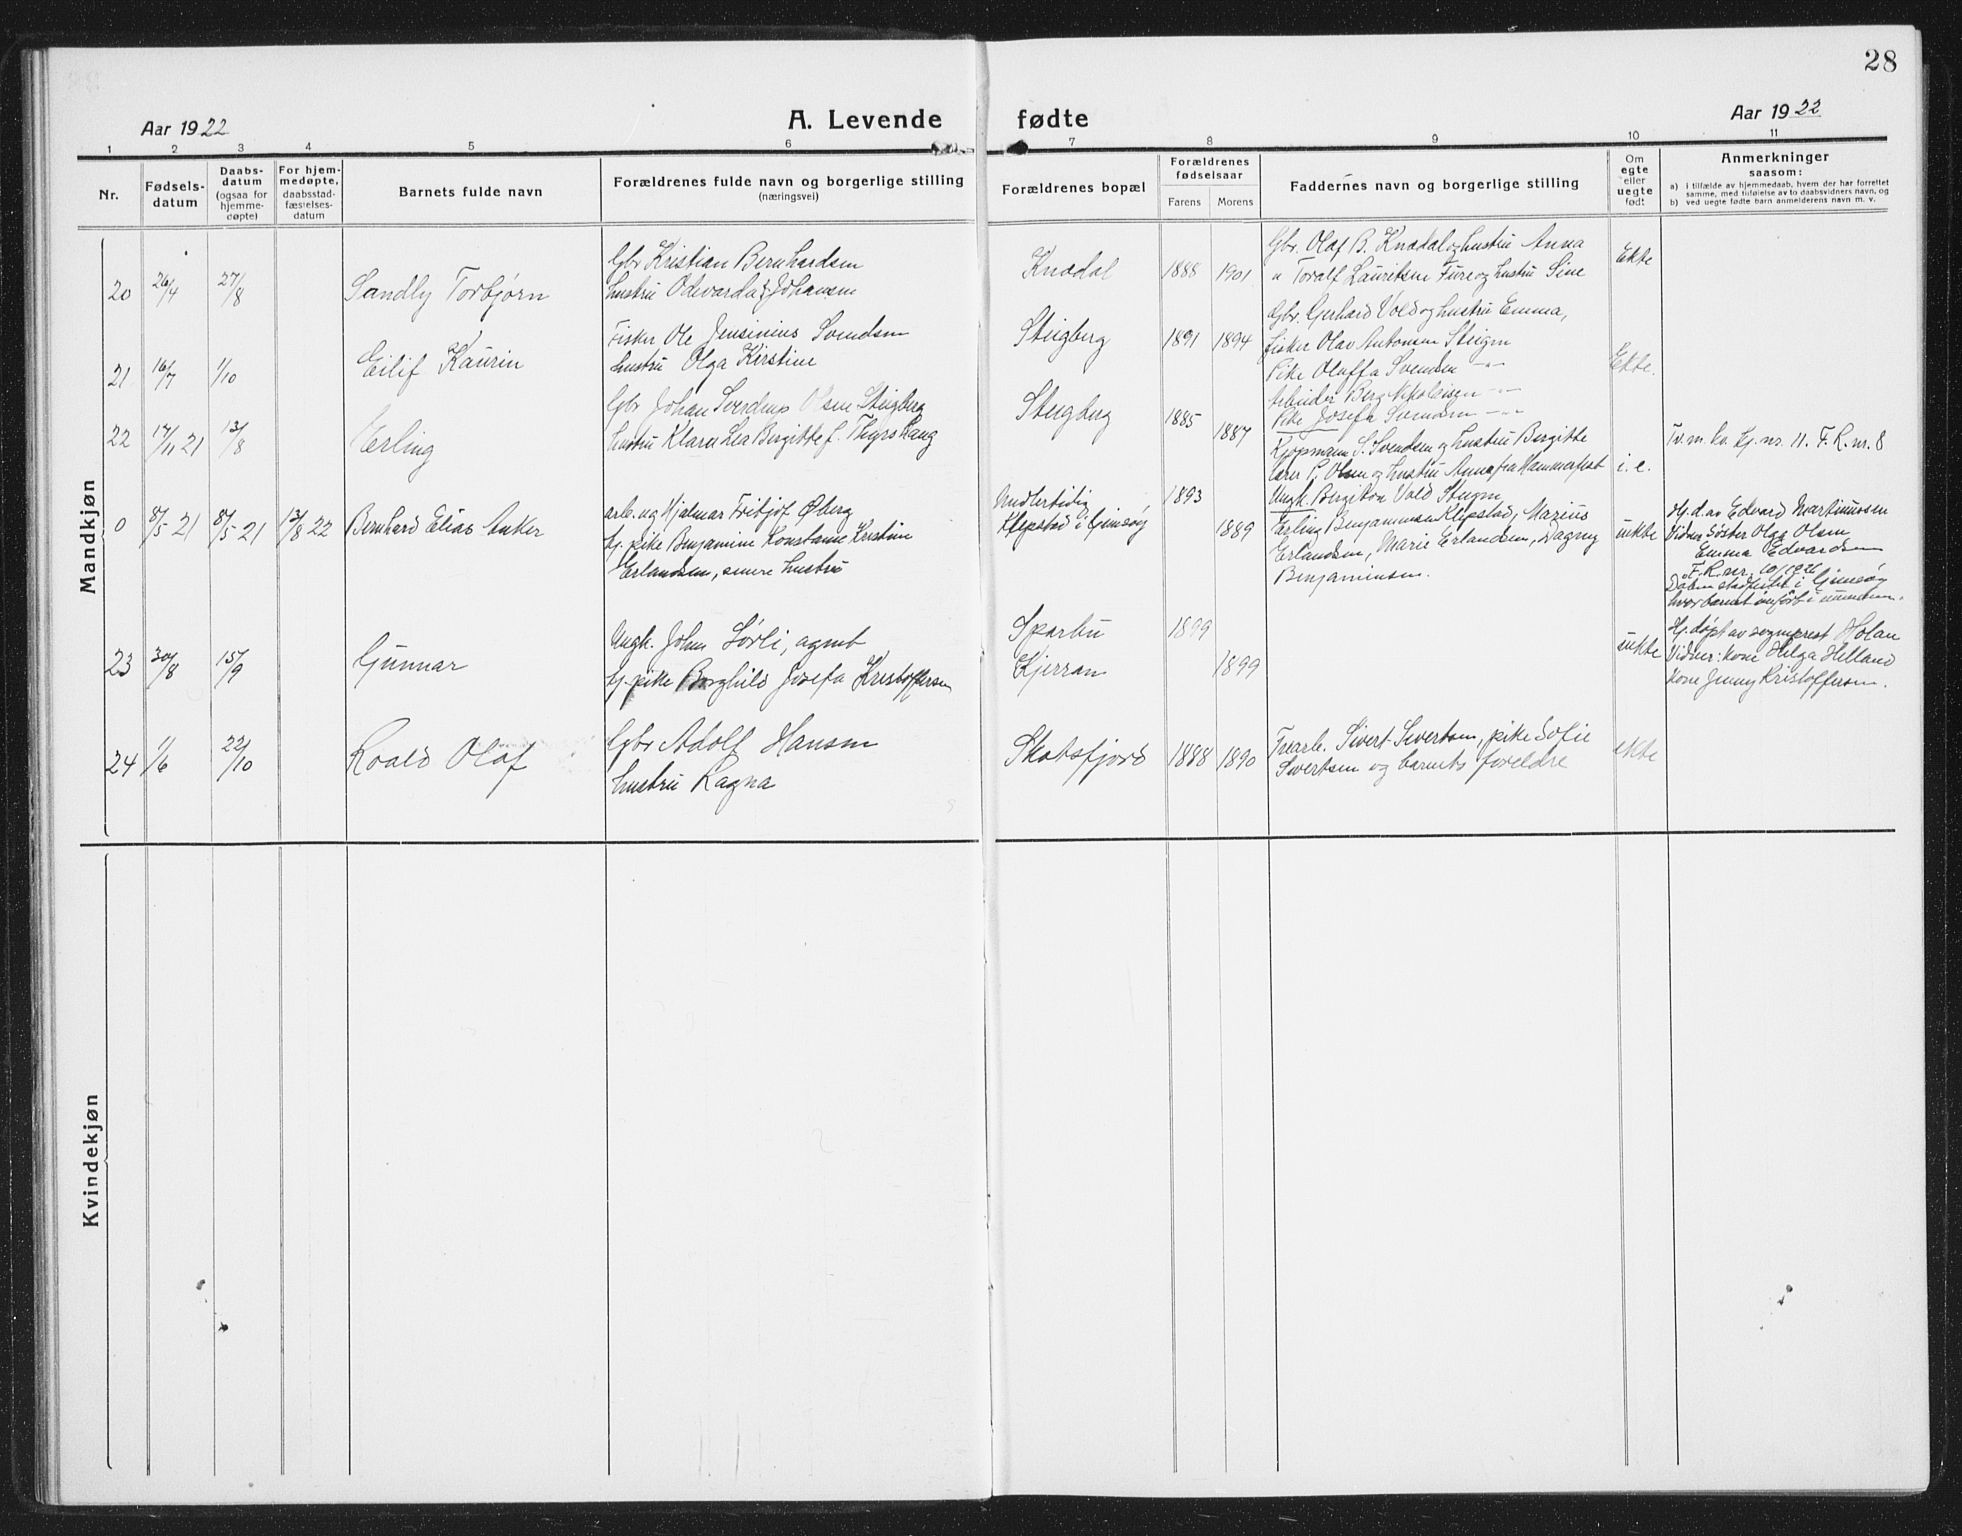 28
Aar 1922
A. Levende fødte
Aar 1922
1 2 3 4 5 6 7 8 9 10 11
Nr.
Fødselsdatum
Daabsdatum (ogsaa for hjemmedøpte)
For hjemmedøpte, daabsstadfæstelsesdatum
Barnets fulde navn
Forældrenes fulde navn og borgerlige stilling
(næringsvei)
Forældrenes bopæl
Forældrenes fødselsaar
Farens Morens
Faddernes navn og borgerlige stilling
Om egte eller uegte født
Anmerkninger
saasom:
a) i tilfælde av hjemmedaab, hvem der har forrettet
samme, med tilføielse av to daabsvidners navn, og
b) ved uegte fødte barn anmelderens navn m. v.
Mandkjøn
20 26/4 27/8 Sandly Torbjørn
Gbr Kristian Bernhardsen
hustru Odevarda f. Johansen
Knædal 1888 1901
Gbr. Olaf B. Knædal og hustru Anna
" Toralf Lauritsen Fure og hustru Sine
Ekte
21 16/7 1/10 Eilif Kaurin
Fisker Ole Jensinius Svendsen
hustru Olga Kirstine
Steigberg 1891 1894
Gbr. Gerhard Vold og hustru Emma,
fisker Olav Antonsen Steigen
Pike Oluffa Svendsen -"-
Arbeider Berg Nikolaisen -"-
Pike Josefa Svendsen -"-
Ekte.
22 17/11 21 13/8 Erling
Gbr Johan Sverdrup Olsen Steigberg
hustru Klara Lea Bergitte f. Thyrshaug
Steigberg 1885 1887
Kjøpmann S. Svendsen og hustru Bergitte
lærer P. Olsen og hustru Anna fra Hammerfest
Ungk. Bergiton Vold Steigen
i. e.
Tv. m. kv. kj. nr. 11. F. R. nr. 8
0 8/5 21 8/5 21 13/8 22 Bernhard Elias Anker
arb. ug Hjalmar Fritjof Øberg
hj. pike Benjamine Konstanse Kristine
Erlandsen, senere hustru
Midlertidig
Klepstad i Gimsøy 1893 1889
Erling Benjaminsen Klepstad, Marius
Erlandsen, Marie Erlandsen, Dagny
Benjaminsen.
uekte
Hj. d. av Edvard Martinussen
Vidner Søster Olga Olsen
Emma Edvardsen
F. R. nr. 10/1926
Daaben stadfestet i Gimsøy
hvor barnet innført i numdam.
23 30/8 15/9 Gunnar
Ungk. John Sørli, agent
hj. pike Borghild Josefa Kristoffersen
Sparbu 1899
Kjerran 1899
uekte
Hj. døpt av sogneprest Holan
Vidner: kone Helga Helland
kone Jenny Kristoffersen.
24 1/6 22/10 Roald Olaf
Gbr Adolf Hansen
hustru Ragna
Skotsfjord 1888 1890
Trearb. Sivert Sivertsen, pike Sofie
Sivertsen og barnets foreldre
ekte
Kvindekjøn